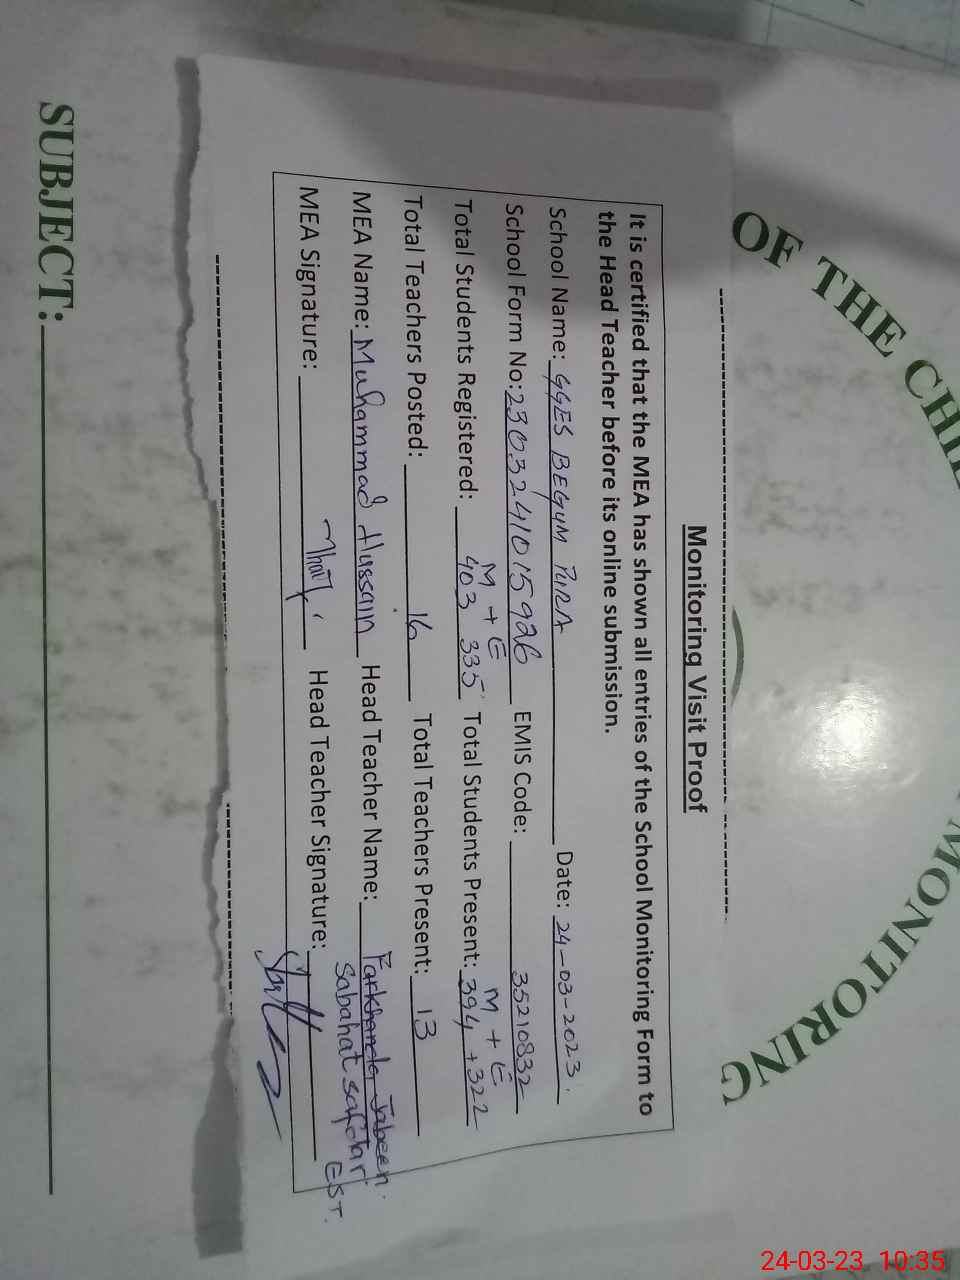 OF THE CHIE
MONITORING
Monitoring Visit Proof
It is certified that the MEA has shown all entries of the School Monitoring Form to
the Head Teacher before its online submission.
School Name: GGES BEGUM PURA Date: 24-03-2023.
School Form No: 2303241015926 EMIS Code: 35210832
M + E M + E
Total Students Registered: 403 335 Total Students Present: 394 + 322
Total Teachers Posted: 16 Total Teachers Present: 13
MEA Name: Muhammad Hussain Head Teacher Name: Farkhanda Jabeen.
Sabahat safdar
EST.
MEA Signature: Head Teacher Signature:
SUBJECT:
24-03-23 10:35